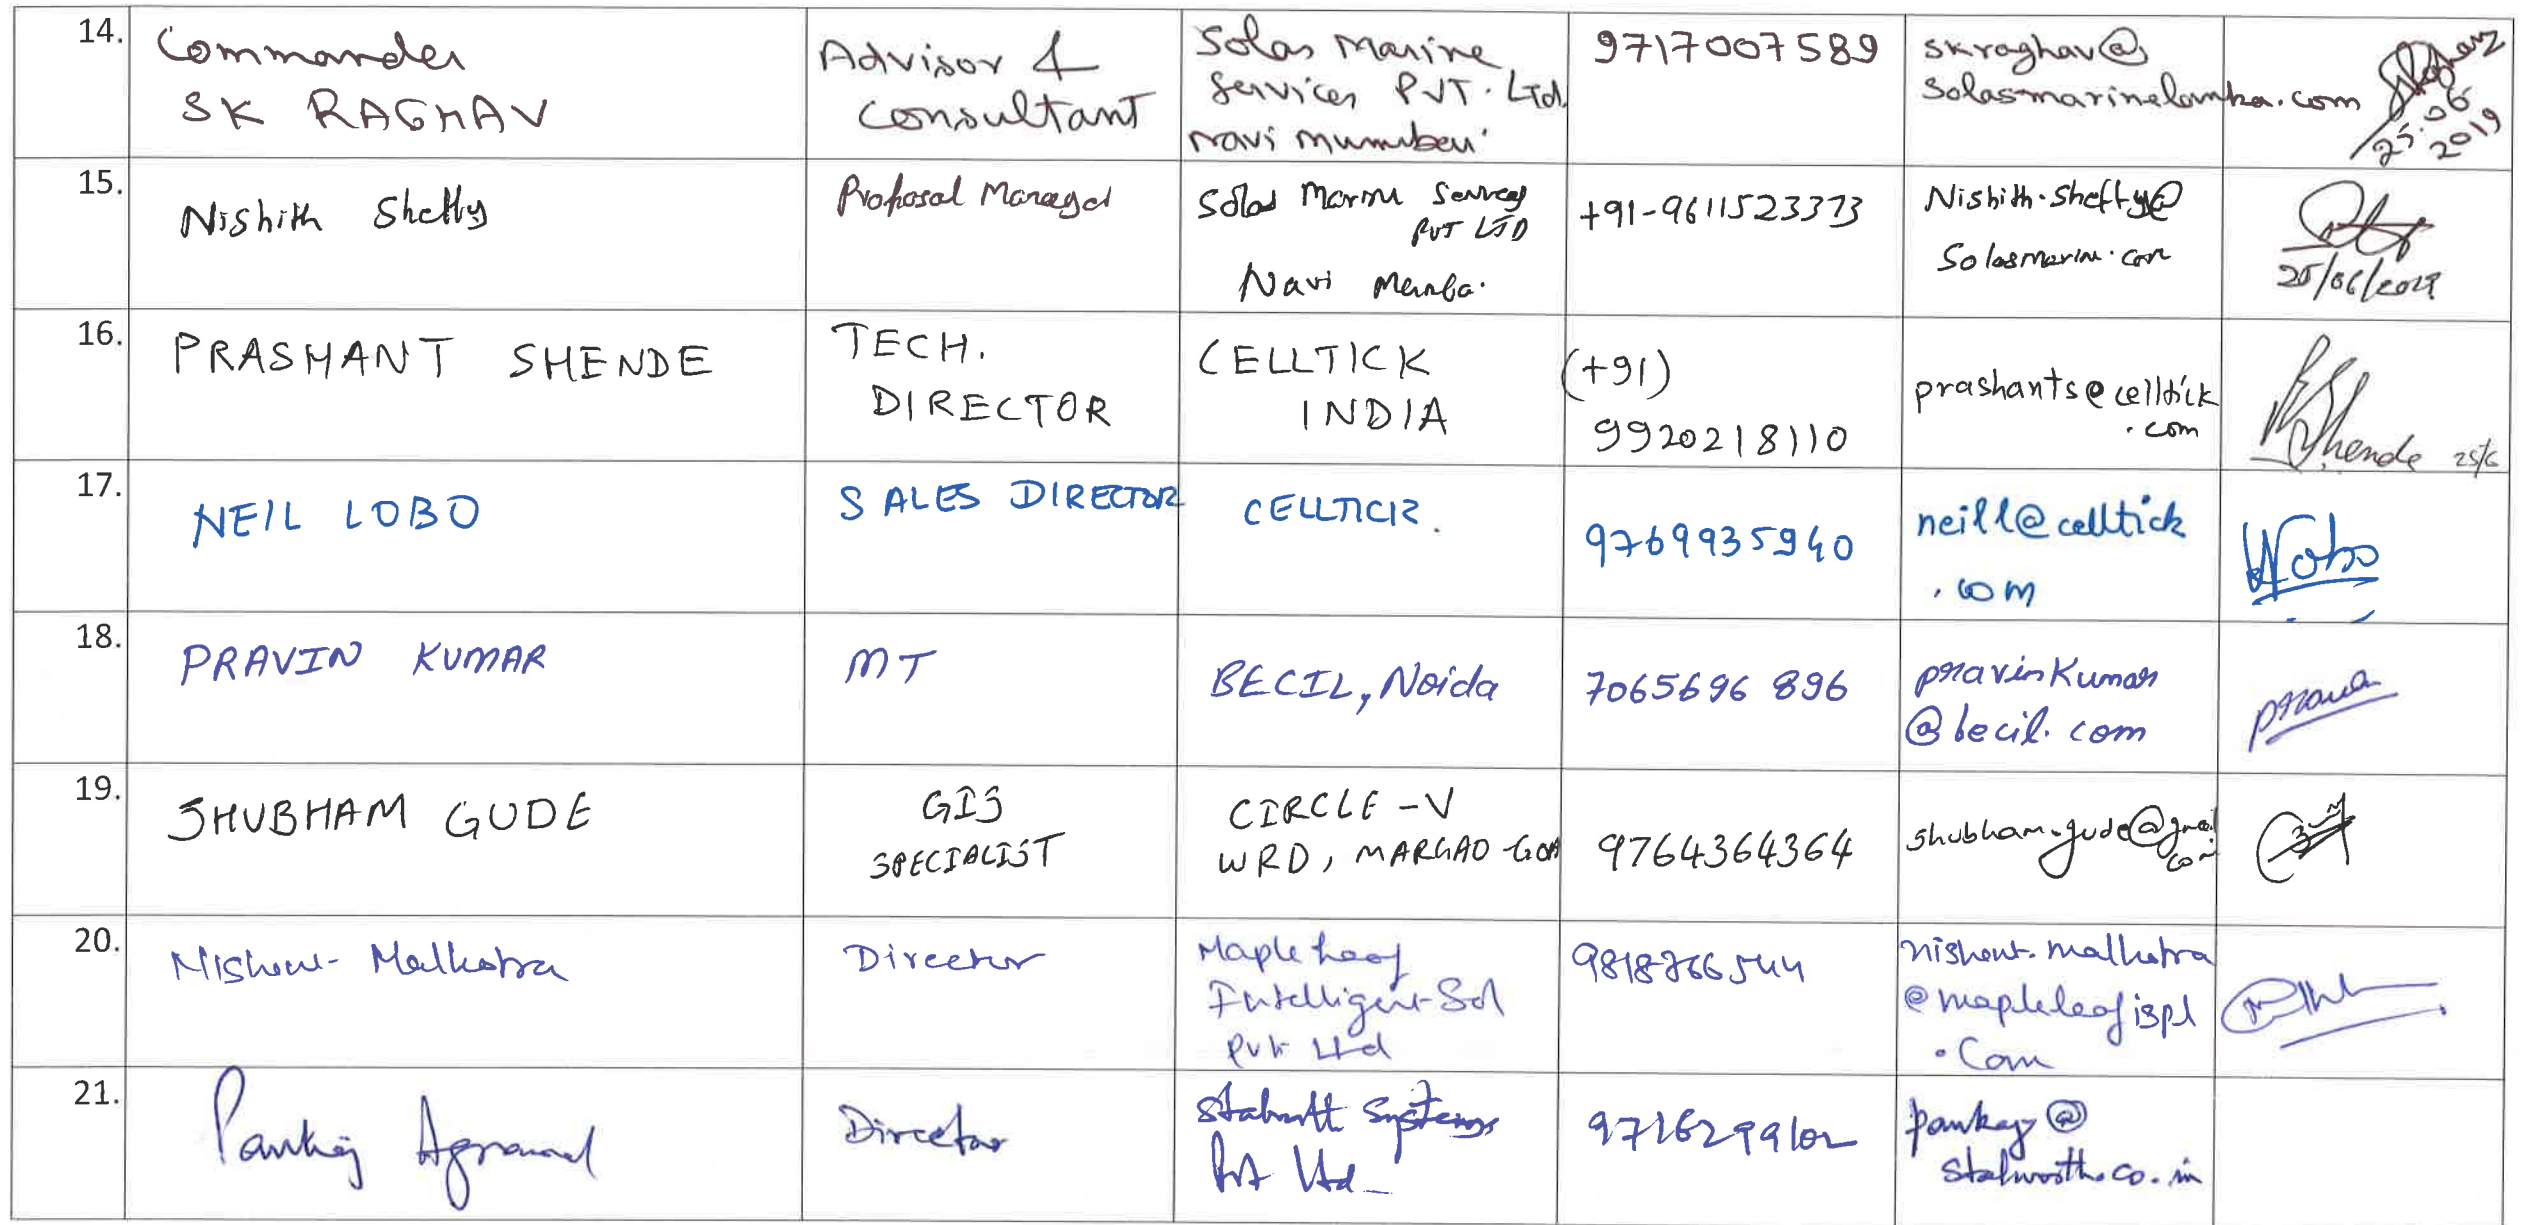 14.
Commander
SK RAGHAV
Advisor &
consultant
Solas Marine
Services PVT. Ltd.
Navi Mumbai
9717007589
skraghav@
solasmarinelanka.com
25.06
2019
15.
Nishith Shetty
Proposal Manager
Solas Marine Services
PVT LTD
Navi Mumbai
+91-9611523373
Nishith.Shetty@
Solasmarine.com
25/06/2019
16.
PRASHANT SHENDE
TECH.
DIRECTOR
CELLTICK
INDIA
(+91)
9920218110
prashants@celltick
.com
Shende 25/6
17.
NEIL LOBO
SALES DIRECTOR
CELLTICK.
9769935940
neill@celltick
.com
Lobo
18.
PRAVIN KUMAR
MT
BECIL, Noida
7065696 896
pravinkumar
@becil.com
19.
SHUBHAM GUDE
GIS
SPECIALIST
CIRCLE-V
WRD, MARGAO-GOA
9764364364
shubham.gude@gmail
com
20.
Nishant Malhotra
Director
Maple Leaf
Intelligent Sol
Pvt Ltd
nishant.malhotra
@mapleleafispl
.Com
21.
Pankaj Agrawal
Director
Stalwart Systems
Pvt Ltd
pankaj@